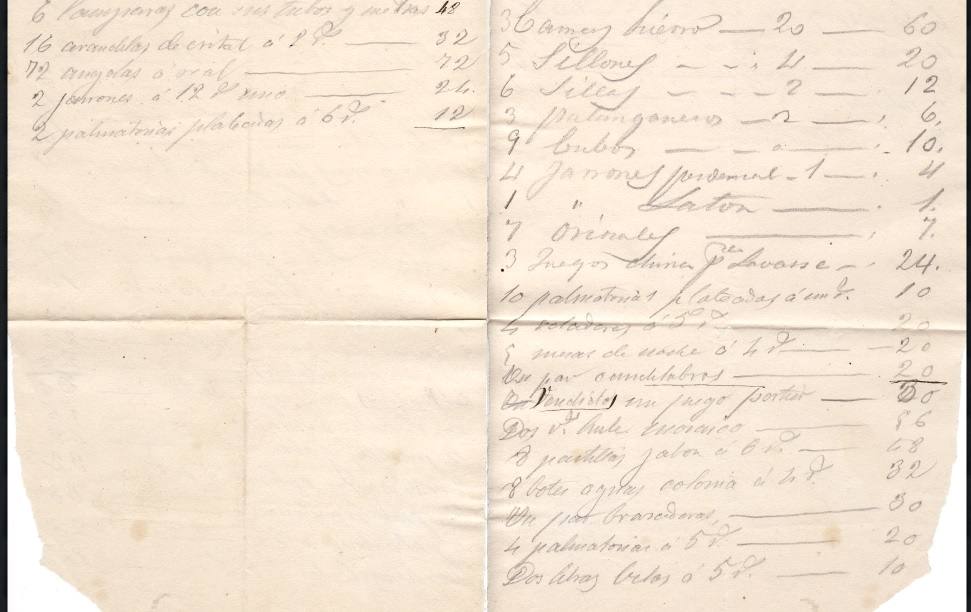 6 lamparas con sus tubos y mechas 48
16 arandelas de cristal á 2 r.s — 32
72 á real — 72
2 jarrones á 12 r.s uno — 24.
2 palmatorias plateadas á 6 r.s 12
3 Camas hierro — 20 — 60
5 Sillones — 4 — 20
6 Sillas — 2 — 12
3 palanganeros — 2 — 6.
9 Cubos — 10.
4 Jarrones pedernal - 1 — 4
1 " Laton — 1.
7 Orinales — 7.
3 Juegos china p.ra — 24.
10 palmatorias plateadas á un r.s 10
4 á 5 r.s 20
5 mesas de noche á 4 r.s — 20
Un par candelabros — 20
Vendidos un juego — 30
Dos hule — 56
8 pastillas jabon á 6 r.s — 48
8 botes aguas colonia á 4 r.s 32
Un par — 30
4 palmatorias á 5 r.s — 20
Dos libras belas á 5 r.s — 10